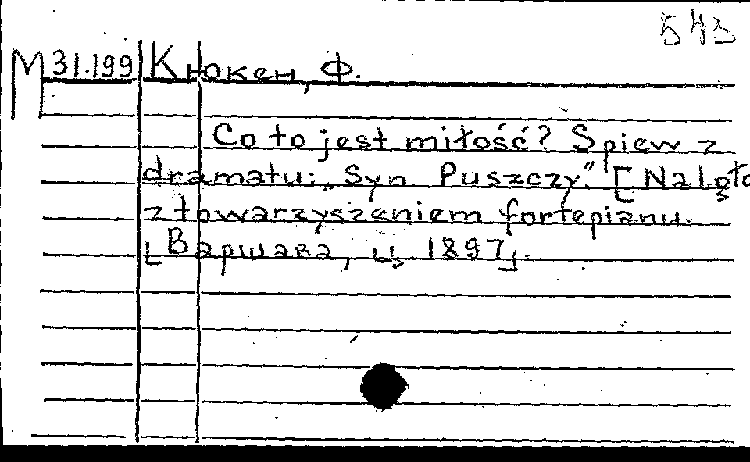 543
М 31.199 Кюкен, Ф.
Co to jest miłość? Śpiew z
dramatu: „Syn Puszczy." [Na
z towarzyszeniem fortepianu.
[Варшава, ц, 1897].